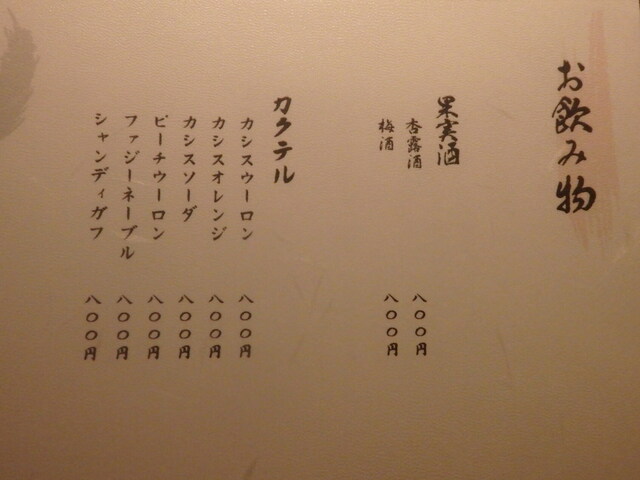 お飲み物
果実酒
杏露酒 八〇〇円
梅酒 八〇〇円
カクテル
カシスウーロン 八〇〇円
カシスオレンジ 八〇〇円
カシスソーダ 八〇〇円
ピーチウーロン 八〇〇円
ファジーネーブル 八〇〇円
シャンディガフ 八〇〇円